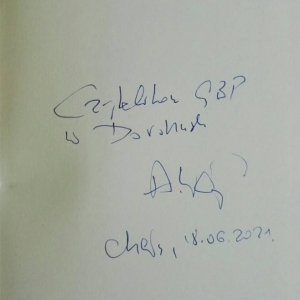 Czytelnikom GBP
w Dorohusk
Chełm, 18.06.2021.